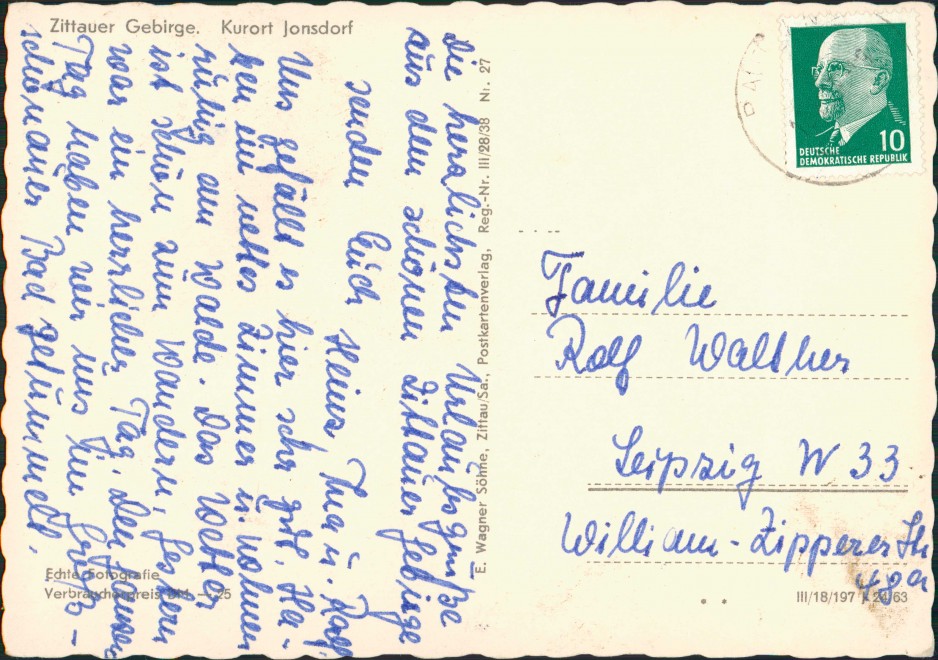 Zittauer Gebirge. Kurort Jonsdorf
Die herzlichsten Urlaubsgrüße
aus dem schönen Zittauer Gebirge
senden Euch Heinz, Thea u. Rolf
Uns gefällt es hier sehr gut. Ha-
ben ein nettes Zimmer u. wohnen
ruhig am Walde. Das Wetter
ist schön zum Wandern, gestern
war ein herrlicher Tag. Den ganzen
Tag haben wir uns im Groß-
schönauer Bad getummelt.
Echte Fotografie
Verbraucherpreis DM —.25
E. Wagner Söhne, Zittau/Sa., Postkartenverlag, Reg.-Nr. III/28/38 Nr. 27
10
DEUTSCHE
DEMOKRATISCHE REPUBLIK
Familie
Rolf Walther
Leipzig W 33
William-Zipperer Str
III/18/197 K 24/63